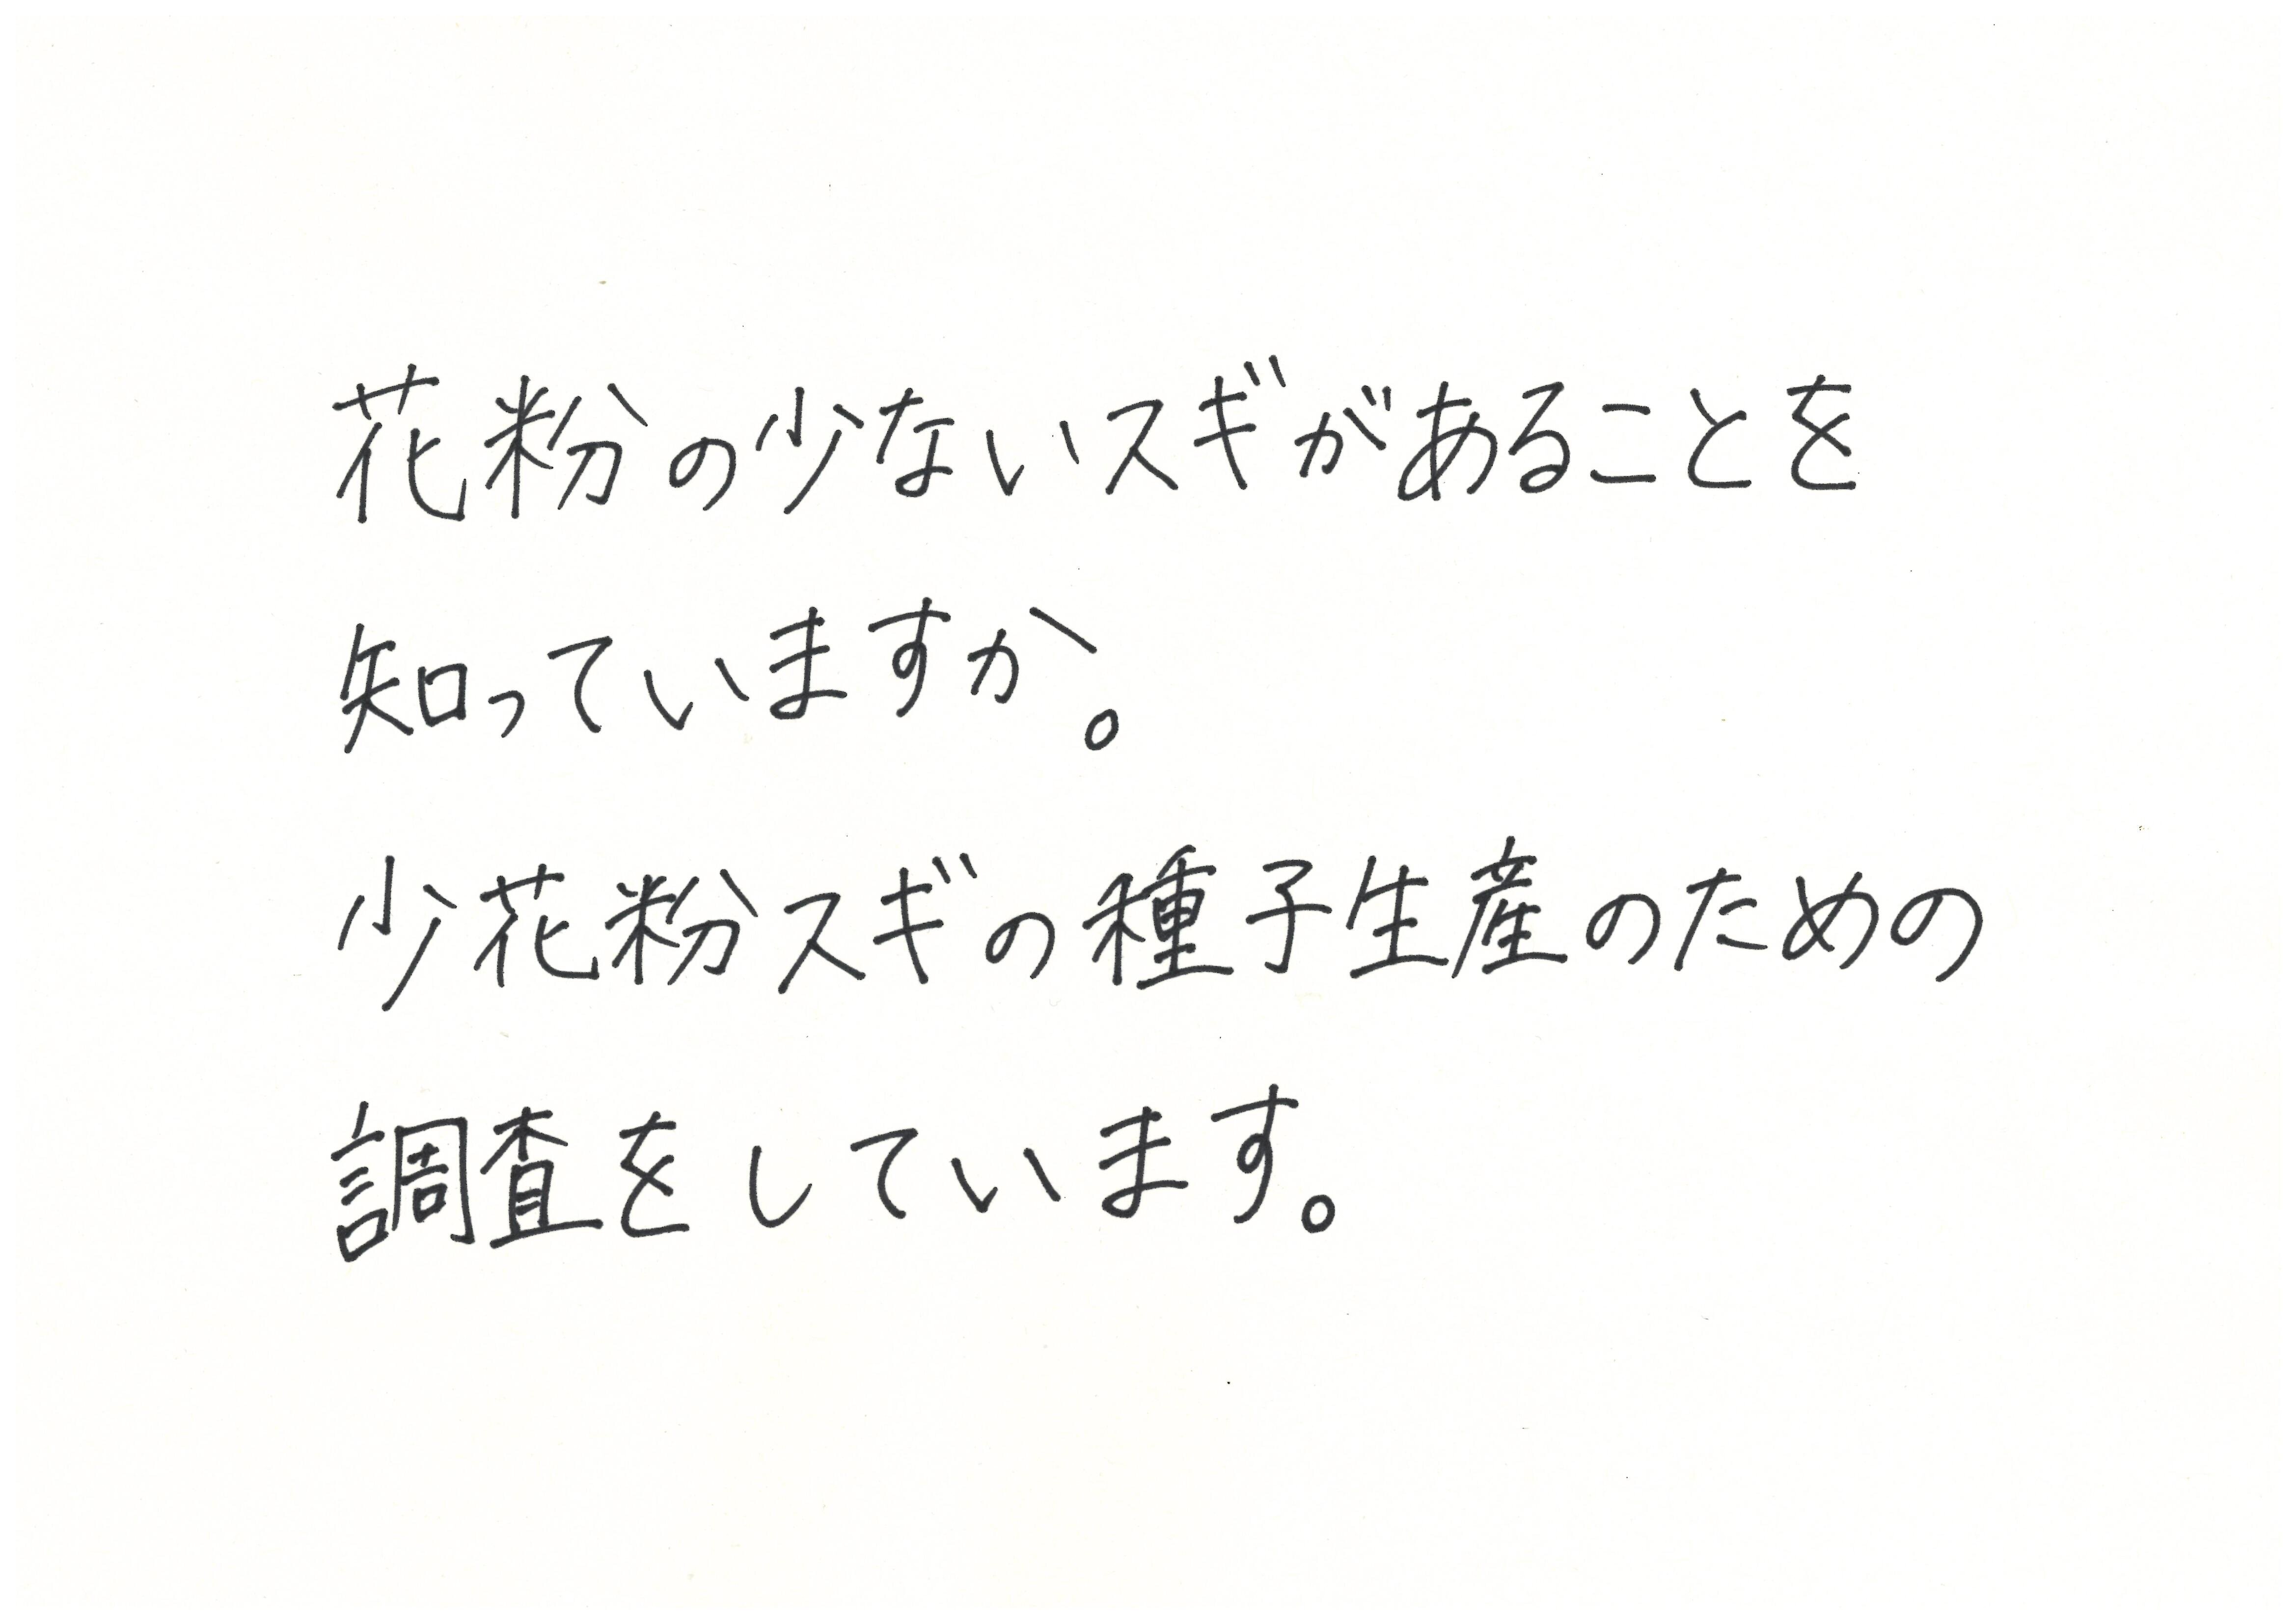 花粉の少ないスギがあることを
知っていますか。
少花粉スギの種子生産のための
調査をしています。